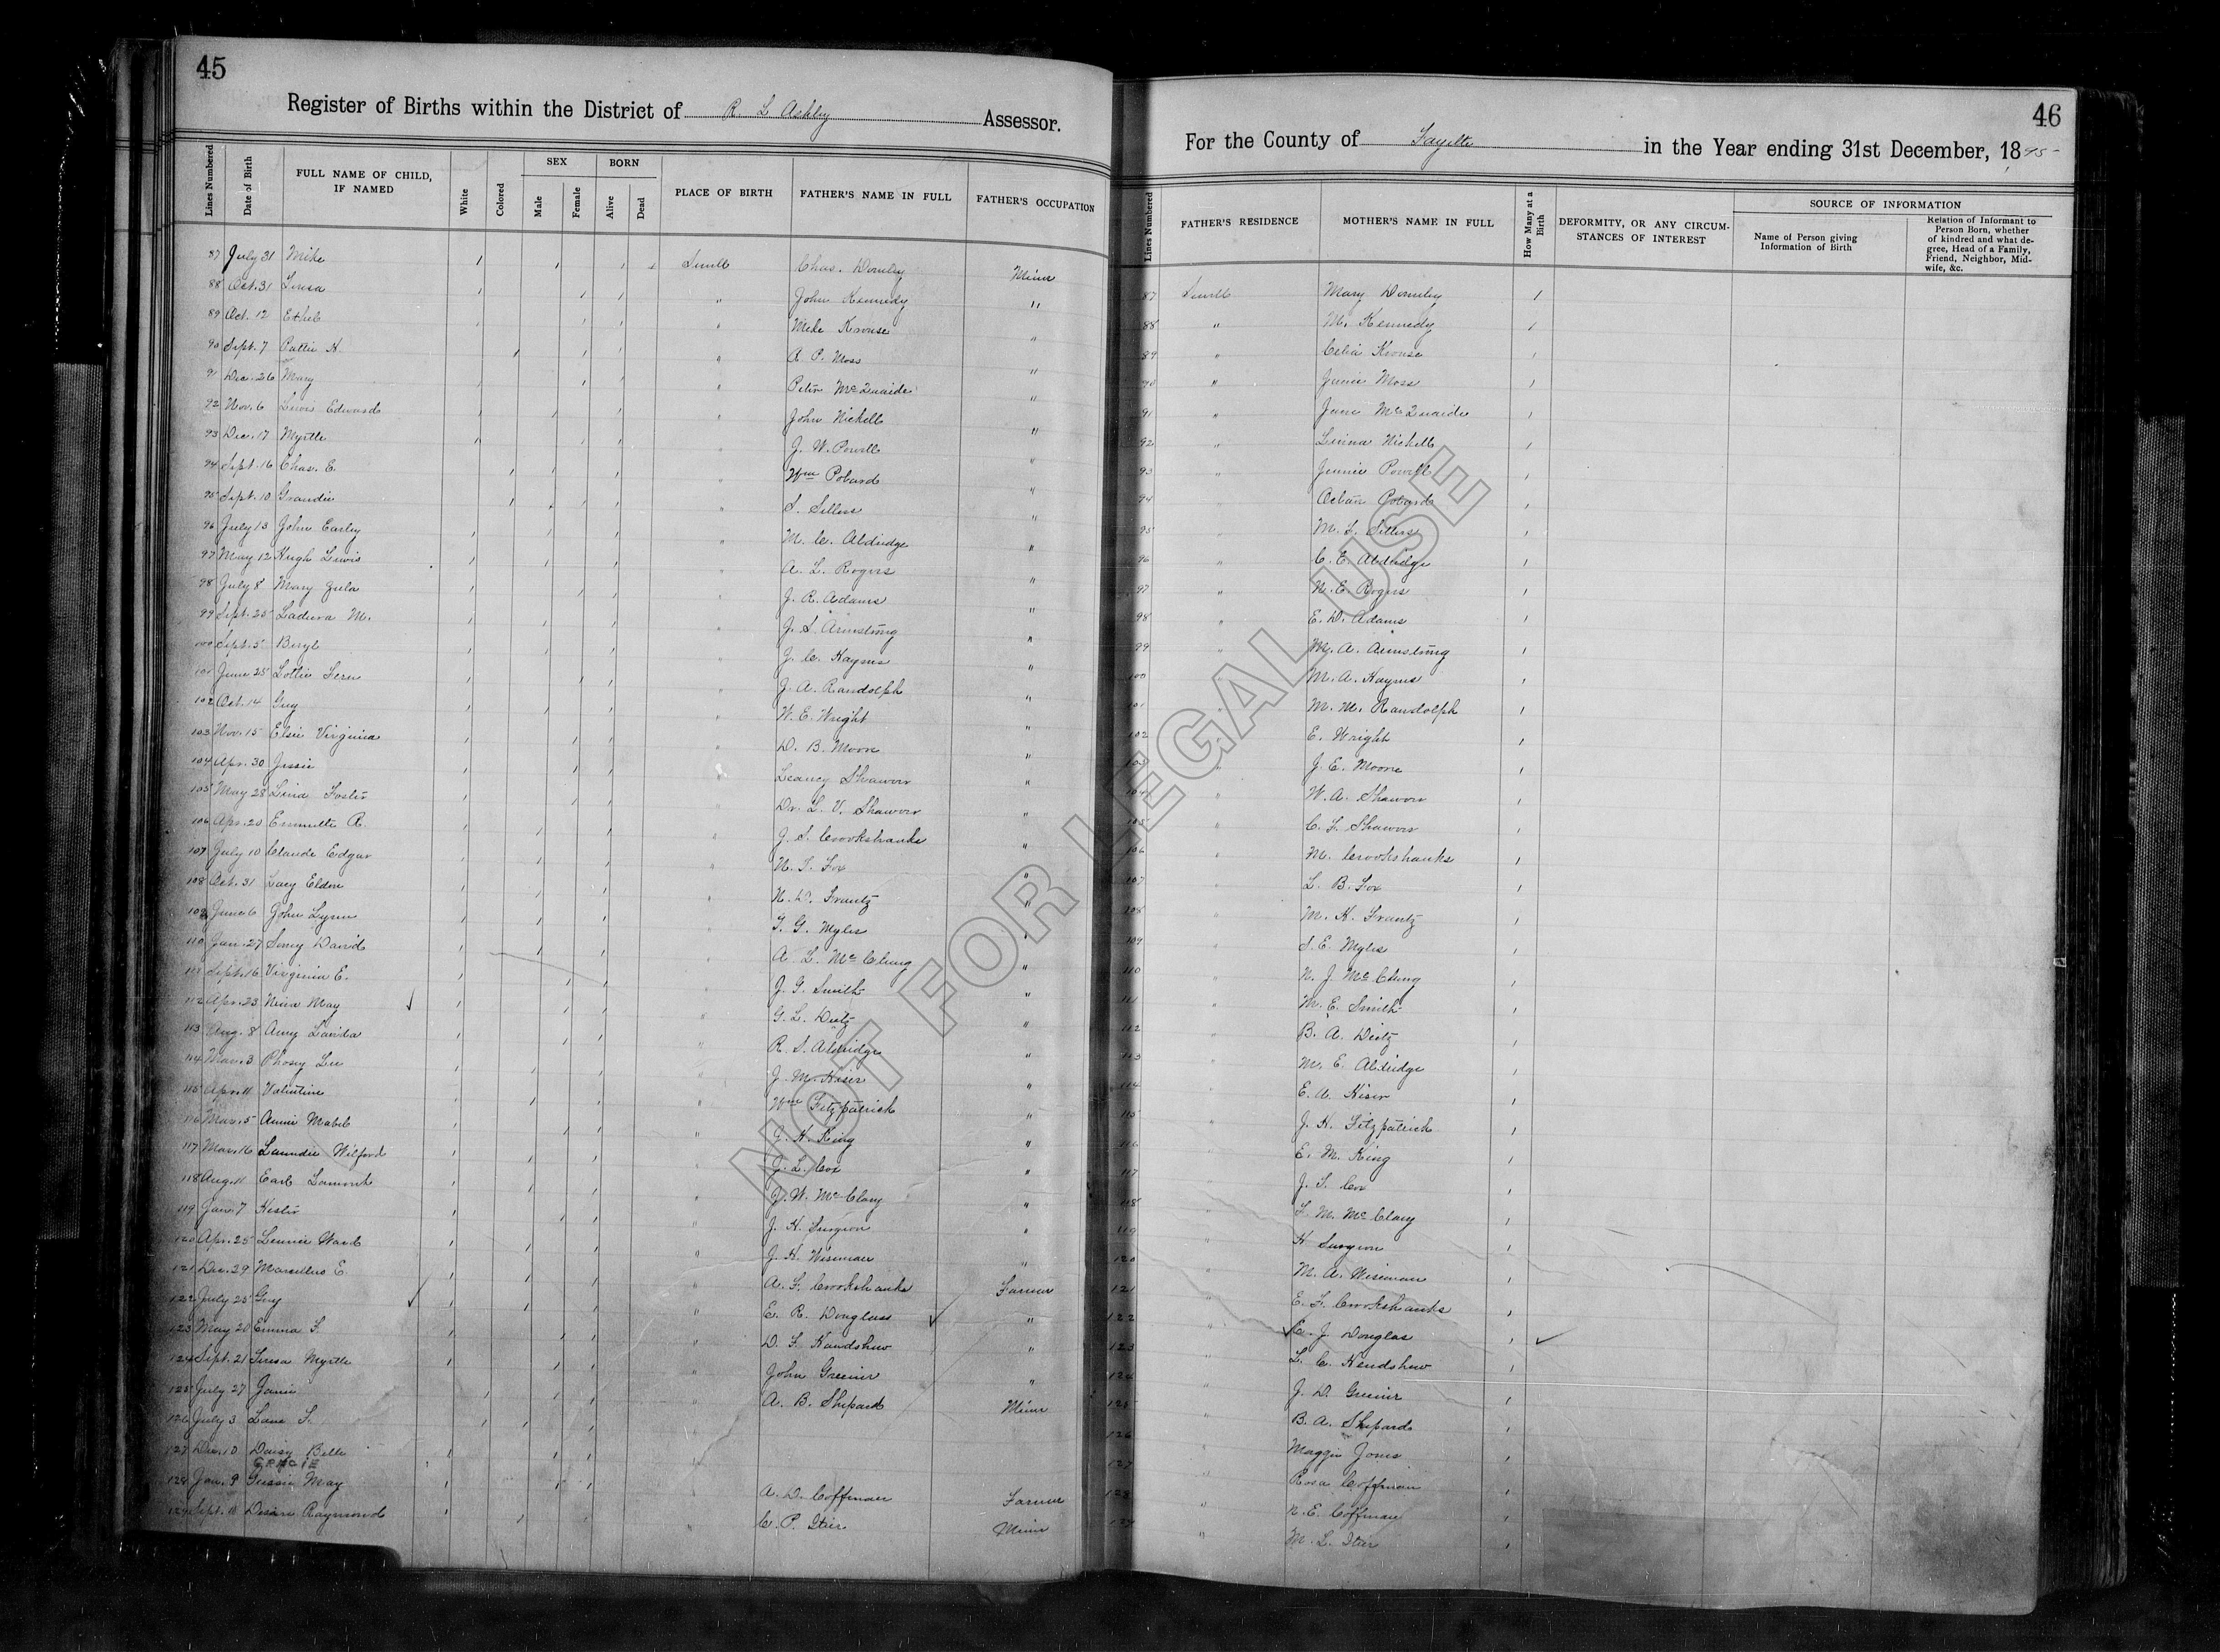 45
Register of Births within the District of R L Ashby Assessor.
Lines Numbered Date of Birth FULL NAME OF CHILD, IF NAMED White Colored SEX Male Female BORN Alive Dead PLACE OF BIRTH FATHER'S NAME IN FULL FATHER'S OCCUPATION
87 July 31 Mike Sewell Chas. Miner
88 Oct. 31 Teresa " John Kennedy "
89 Oct. 12 Ethel " Mike Krouse "
90 Sept. 7 H. " A. P. Moss "
91 Dec. 26 Mary " Peter McQuaide "
92 Nov. 6 Lewis Edward " John Nickell "
93 Dec. 17 Myrtle " J. W. Powell "
94 Sept. 16 Chas. E. " Wm "
95 Sept. 10 " S. Sellers "
96 July 13 John Earley " M. C. Aldridge "
97 May 12 Hugh Lewis " A. L. Rogers "
98 July 8 Mary Zula " J. R. Adams "
99 Sept. 25 M. " J. S. Armstrong "
100 Sept. 5 Beryl " J. C. "
101 June 25 Lottie Fern " J. A. Randolph "
102 Oct. 14 Guy " W. E. Wright "
103 Nov. 15 Elsie Virginia " D. B. Moore "
104 Apr. 30 Jessie " Shawver "
105 May 28 Lina Foster " Dr. L. V. Shawver "
106 Apr. 20 Emmette R. " J. S. Crookshanks "
107 July 10 Claude Edgar " N. T. Fox "
108 Oct. 31 Lacy Elden " N. D. Frantz "
109 June 6 John Lynn " T. G. Myles "
110 Jan. 27 David " A. L. McClung "
111 Sept. 16 Virginia E. " J. G. Smith "
112 Apr. 23 Nina May " G. L. Dietz "
113 Aug. 8 Amy " R. S. Aldridge "
114 Mar. 3 Lee " J. M. Kiser "
115 Apr. 11 Valentine " Wm Fitzpatrick "
116 Mar. 5 Annie Mabel " G. H. King "
117 Mar. 16 Wilford " J. L. Cox "
118 Aug. 11 Earl Lamont " J. W. McClary "
119 Jan. 7 Hester " J. H. Surgeon "
120 Apr. 25 Lennie Ward " J. H. Wiseman "
121 Dec. 29 Marcellus E. " A. F. Crookshanks Farmer
122 July 25 Guy " E. R. Douglass "
123 May 20 Emma F. " D. F. Handshaw "
124 Sept. 21 Teresa Myrtle " John Greener "
125 July 27 Janie " A. B. Shepard Miner
126 July 3 F.
127 Dec. 10 Daisy Belle "
GRACIE
128 Jan. 9 Gussie May A. D. Coffman Farmer
129 Sept. Raymond " C. P. Itter Miner
46
For the County of Fayette in the Year ending 31st December, 1895
Lines Numbered FATHER'S RESIDENCE MOTHER'S NAME IN FULL How Many at a Birth DEFORMITY, OR ANY CIRCUMSTANCES OF INTEREST SOURCE OF INFORMATION
Name of Person giving Information of Birth
Relation of Informant to Person Born, whether of kindred and what degree, Head of a Family, Friend, Neighbor, Midwife, &c.
87 Sewell Mary 1
88 " M. Kennedy 1
89 " Celia Krouse 1
90 " Janie Moss 1
91 " Jane McQuaide 1
92 " Nickell 1
93 " Jennie Powell 1
94 " 1
95 " M. F. Sellers 1
96 " C. E. Aldridge 1
97 " N. E. Rogers 1
98 " E. D. Adams 1
99 " M. A. Armstrong 1
100 " M. A. 1
101 " M. M. Randolph 1
102 " E. Wright 1
103 " J. E. Moore 1
104 " W. A. Shawver 1
105 " C. F. Shawver 1
106 " M. Crookshanks 1
107 " L. B. Fox 1
108 " M. K. Frantz 1
109 " S. E. Myles 1
110 " N. J. McClung 1
111 " M. E. Smith 1
112 " B. A. Dietz 1
113 " M. E. Aldridge 1
114 " E. A. Kiser 1
115 " J. H. Fitzpatrick 1
116 " E. M. King 1
117 " J. S. Cox 1
118 " F. M. McClary 1
119 " H Surgeon 1
120 " M. A. Wiseman 1
121 " E. F. Crookshanks 1
122 " E. J. Douglas 1
123 " L. C. Hendshaw 1
124 " J. D. Greener 1
125 " B. A. Shepard 1
126 " Maggie Jones 1
127 " Rosa Coffman 1
128 " N. E. Coffman 1
129 " M. L. Itter 1
NOT FOR LEGAL USE